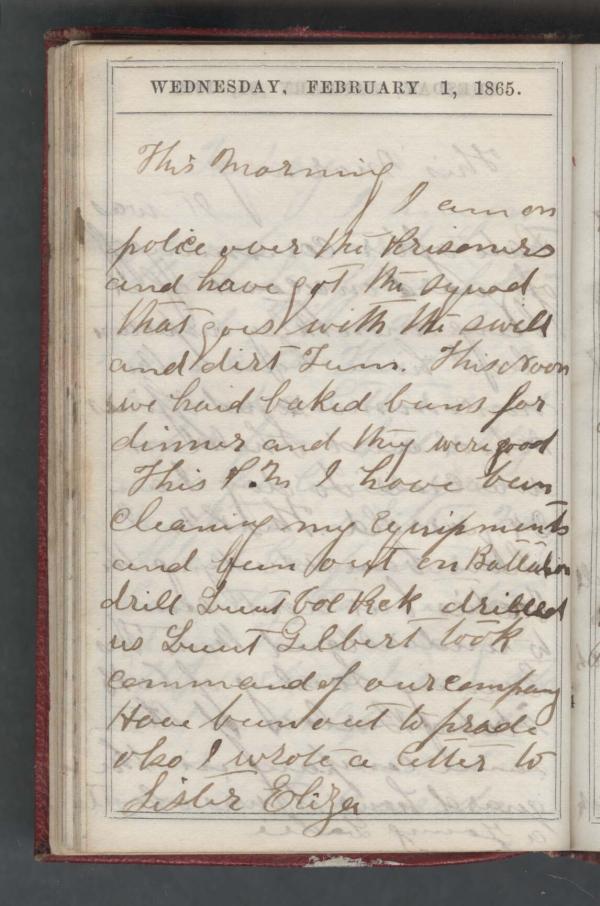 WEDNESDAY, FEBRUARY 1, 1865.
This Morning
I am on
police over the Prisoners
and have got the squad
that goes with the swill
and dirt Team. This Noon
we had baked beans for
dinner and they were good
This P.M I have been
cleaning my Equipments
and been out on Battalion
drill Lieut Col Peck drilled
us Lieut Gilbert took
command of our company
Have been out to prade
also I wrote a letter to
Sister Eliza